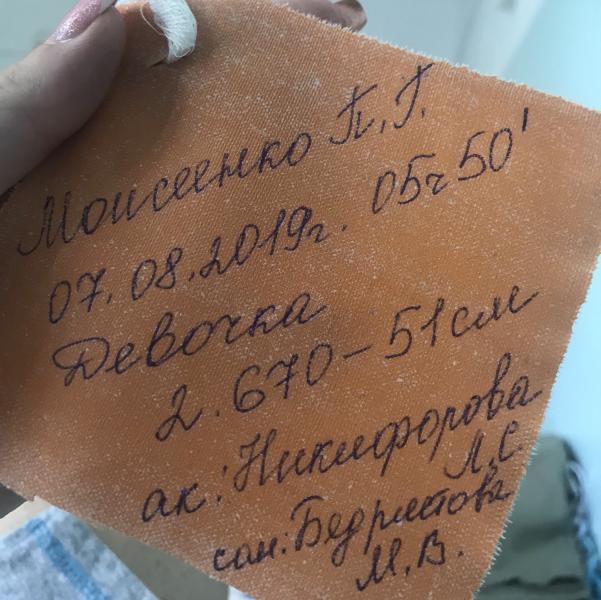 Моисеенко П.Г.
07.08.2019г. 05ч 50'
Девочка
2.670-51см
ак: Никифорова
Л.С.
сан:
М.В.